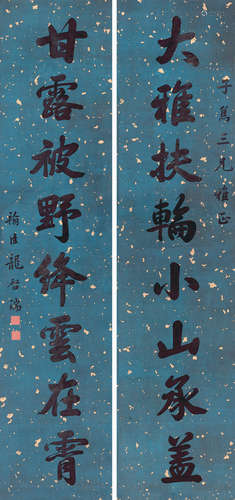 子篤三兄雅正
大雅扶輪小山承蓋
甘露被野絳雲在霄
翰臣龍啟瑞